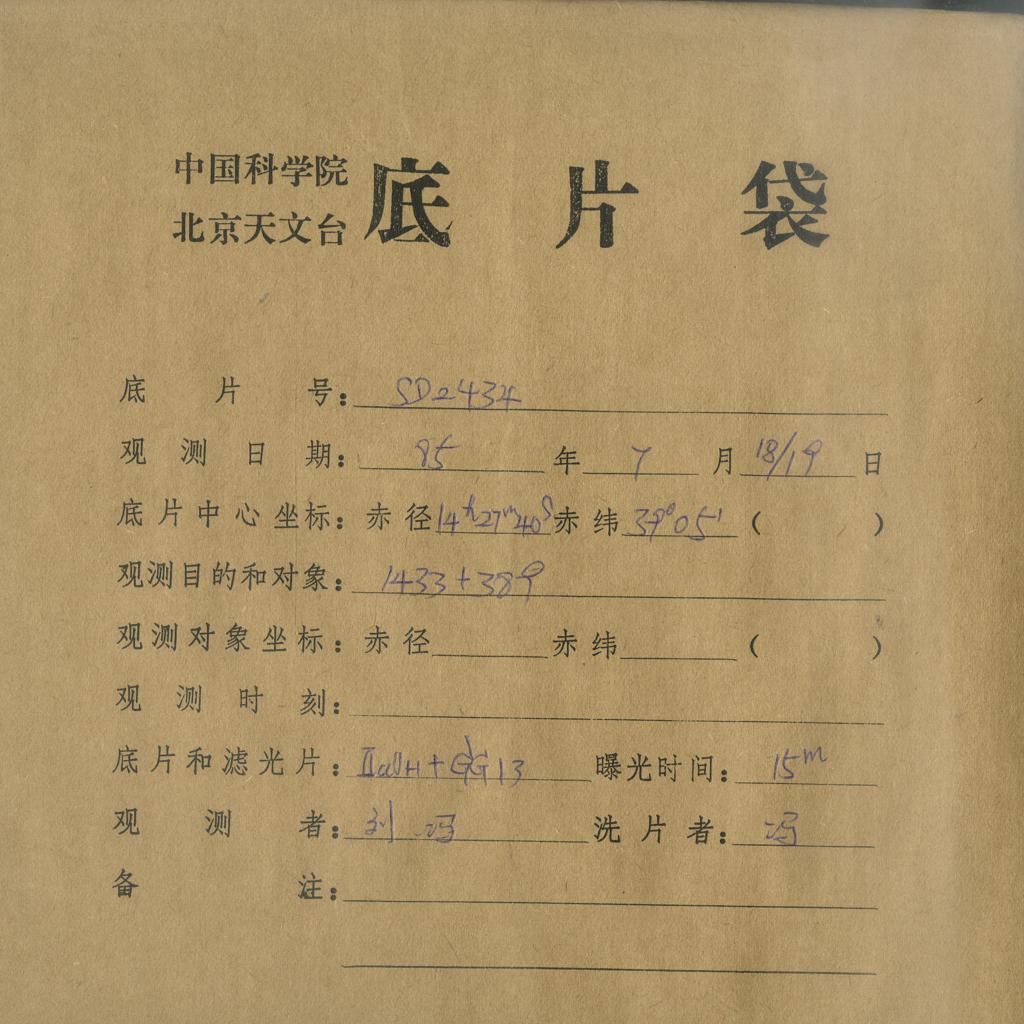 中国科学院
北京天文台
底片袋
底片号：SD2434
观测日期：85年7月18/19日
底片中心坐标：赤径14h27m40s赤纬39°05'（ ）
观测目的和对象：1433+389
观测对象坐标：赤径 赤纬 （ ）
观测时刻：
底片和滤光片：GG13 曝光时间：15m
观测者：刘 冯 洗片者：冯
备注：